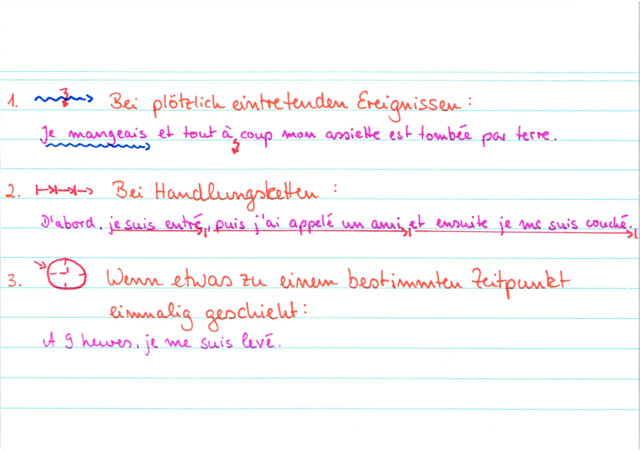 1. Bei plötzlich eintretenden Ereignissen:
Je mangeais et tout à coup mon assiette est tombée par terre.
2. Bei Handlungsketten:
D'abord, je suis entré, puis j'ai appelé un ami, et ensuite je me suis couché.
3. Wenn etwas zu einem bestimmten Zeitpunkt
einmalig geschieht:
A 9 heures, je me suis levé.